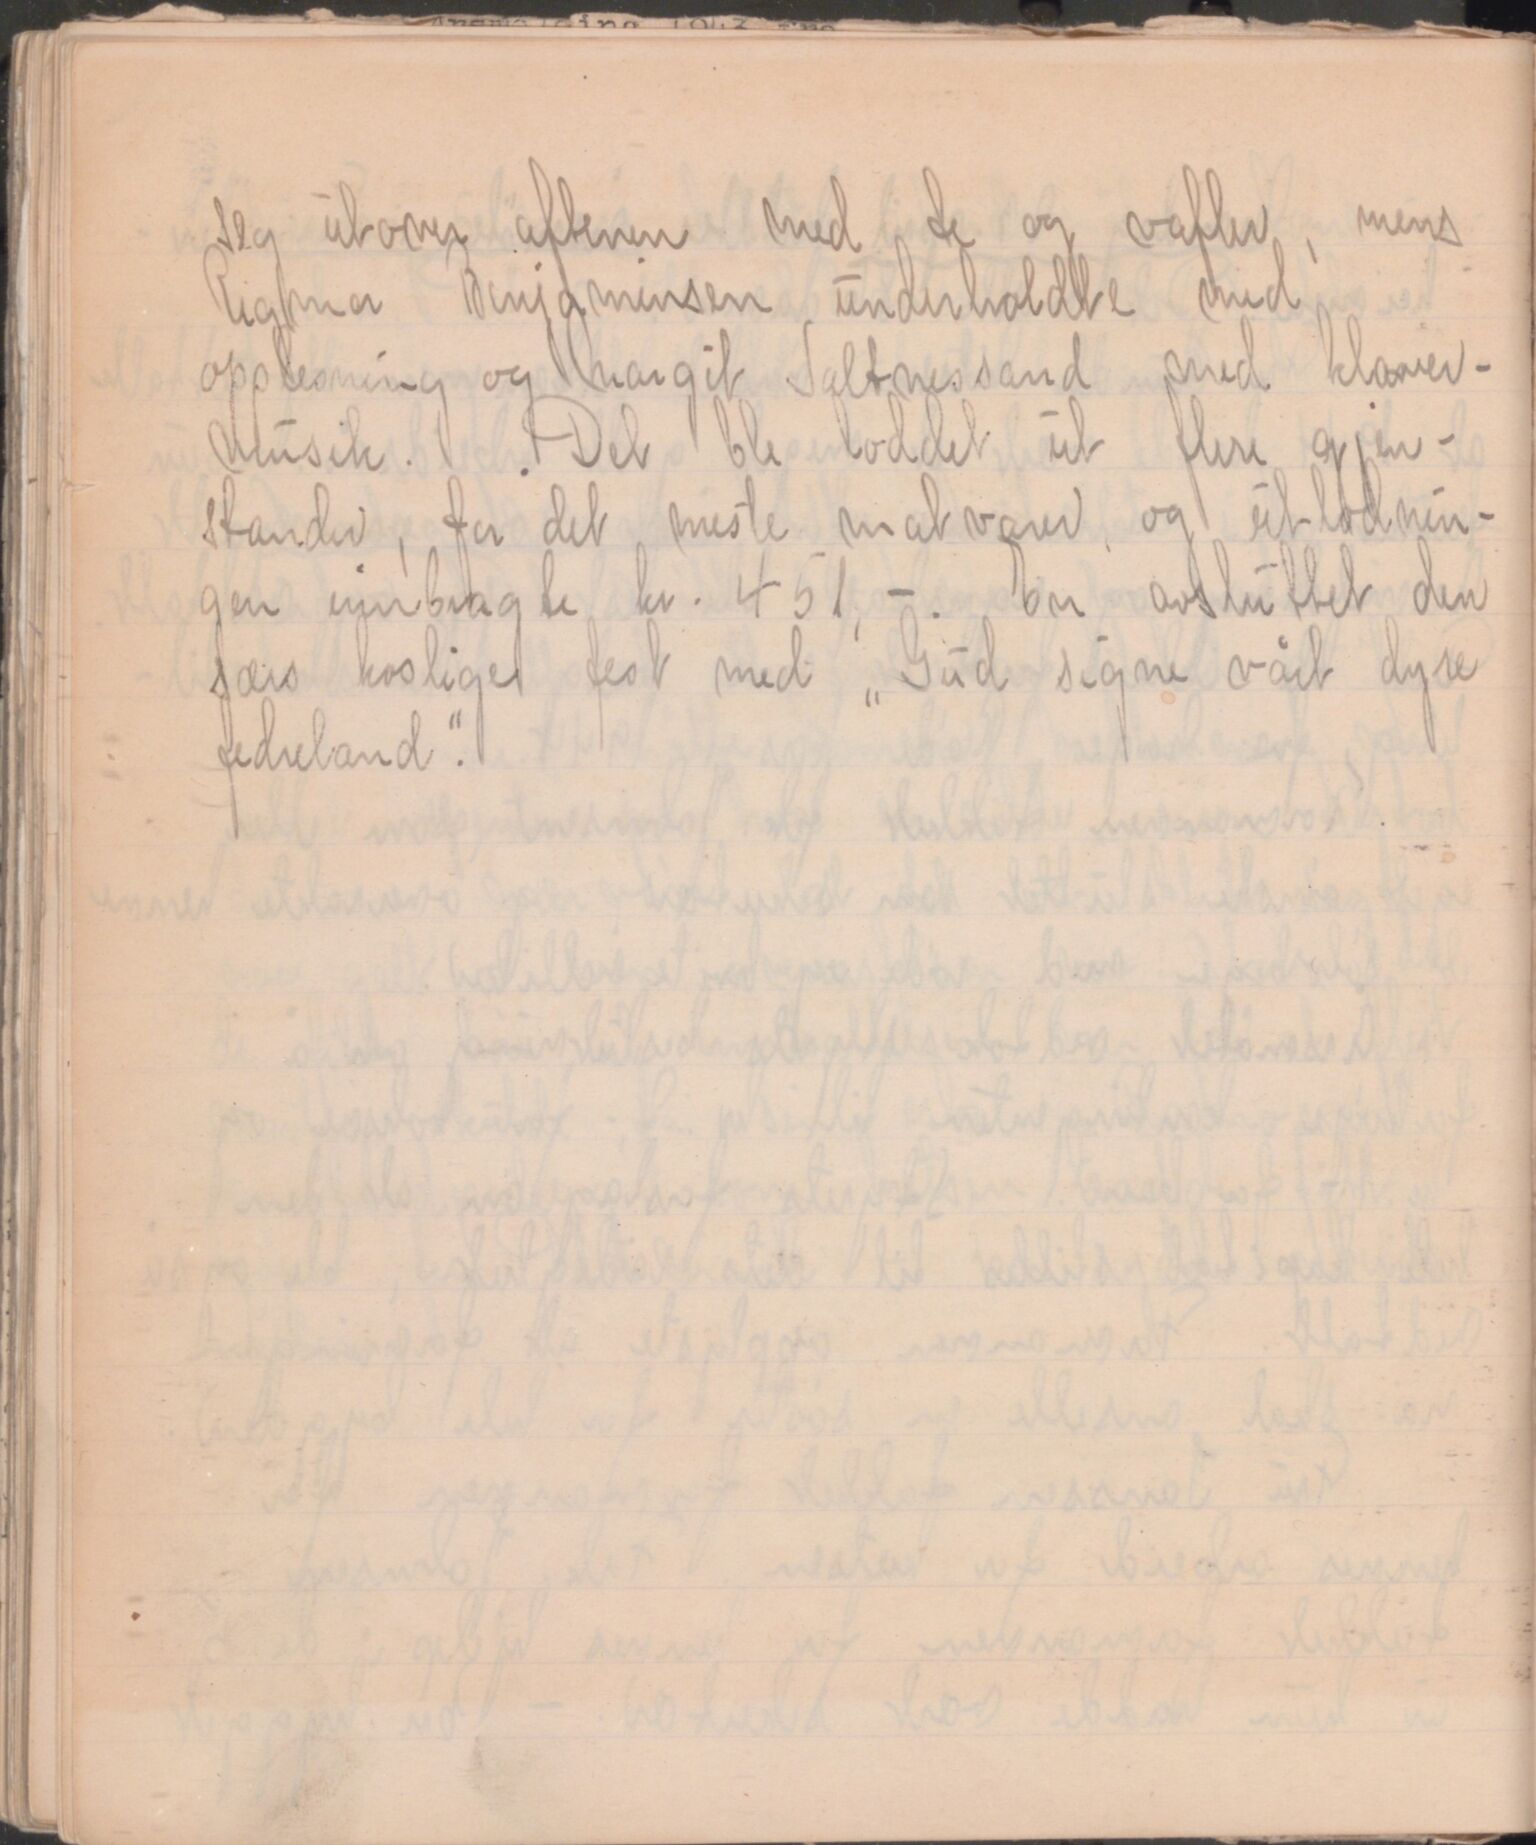 seg utover aftenen med te og vafler, mens
Rigmor Benjaminsen underholdte med
opplesning og Margit Saltnessand med klaver-
musik. Det ble loddet ut flere gjen-
stander, for det meste matvarer, og utlodnin-
gen innbragte kr. 451,-. En avsluttet den
særs koslige fest med „Gud signe vårt dyre
fedreland".